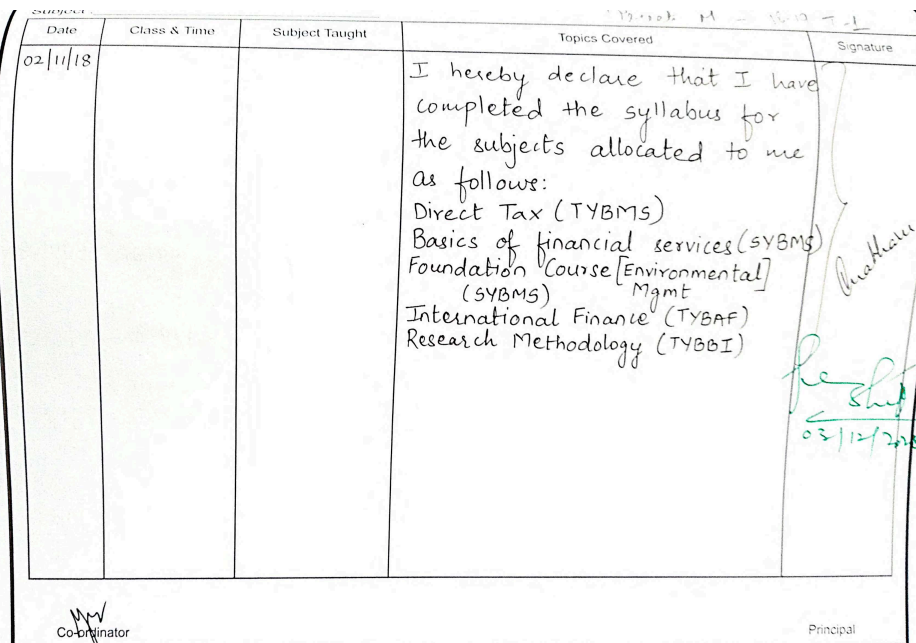 Subject:
Date Class & Time Subject Taught Topics Covered Signature
02/11/18
I hereby declare that I have
completed the syllabus for
the subjects allocated to me
as follows:
Direct Tax (TYBMS)
Basics of financial services (SYBMS)
Foundation Course [Environmental]
(SYBMS) Mgmt
International Finance (TYBAF)
Research Methodology (TYBBI)
Co-ordinator Principal